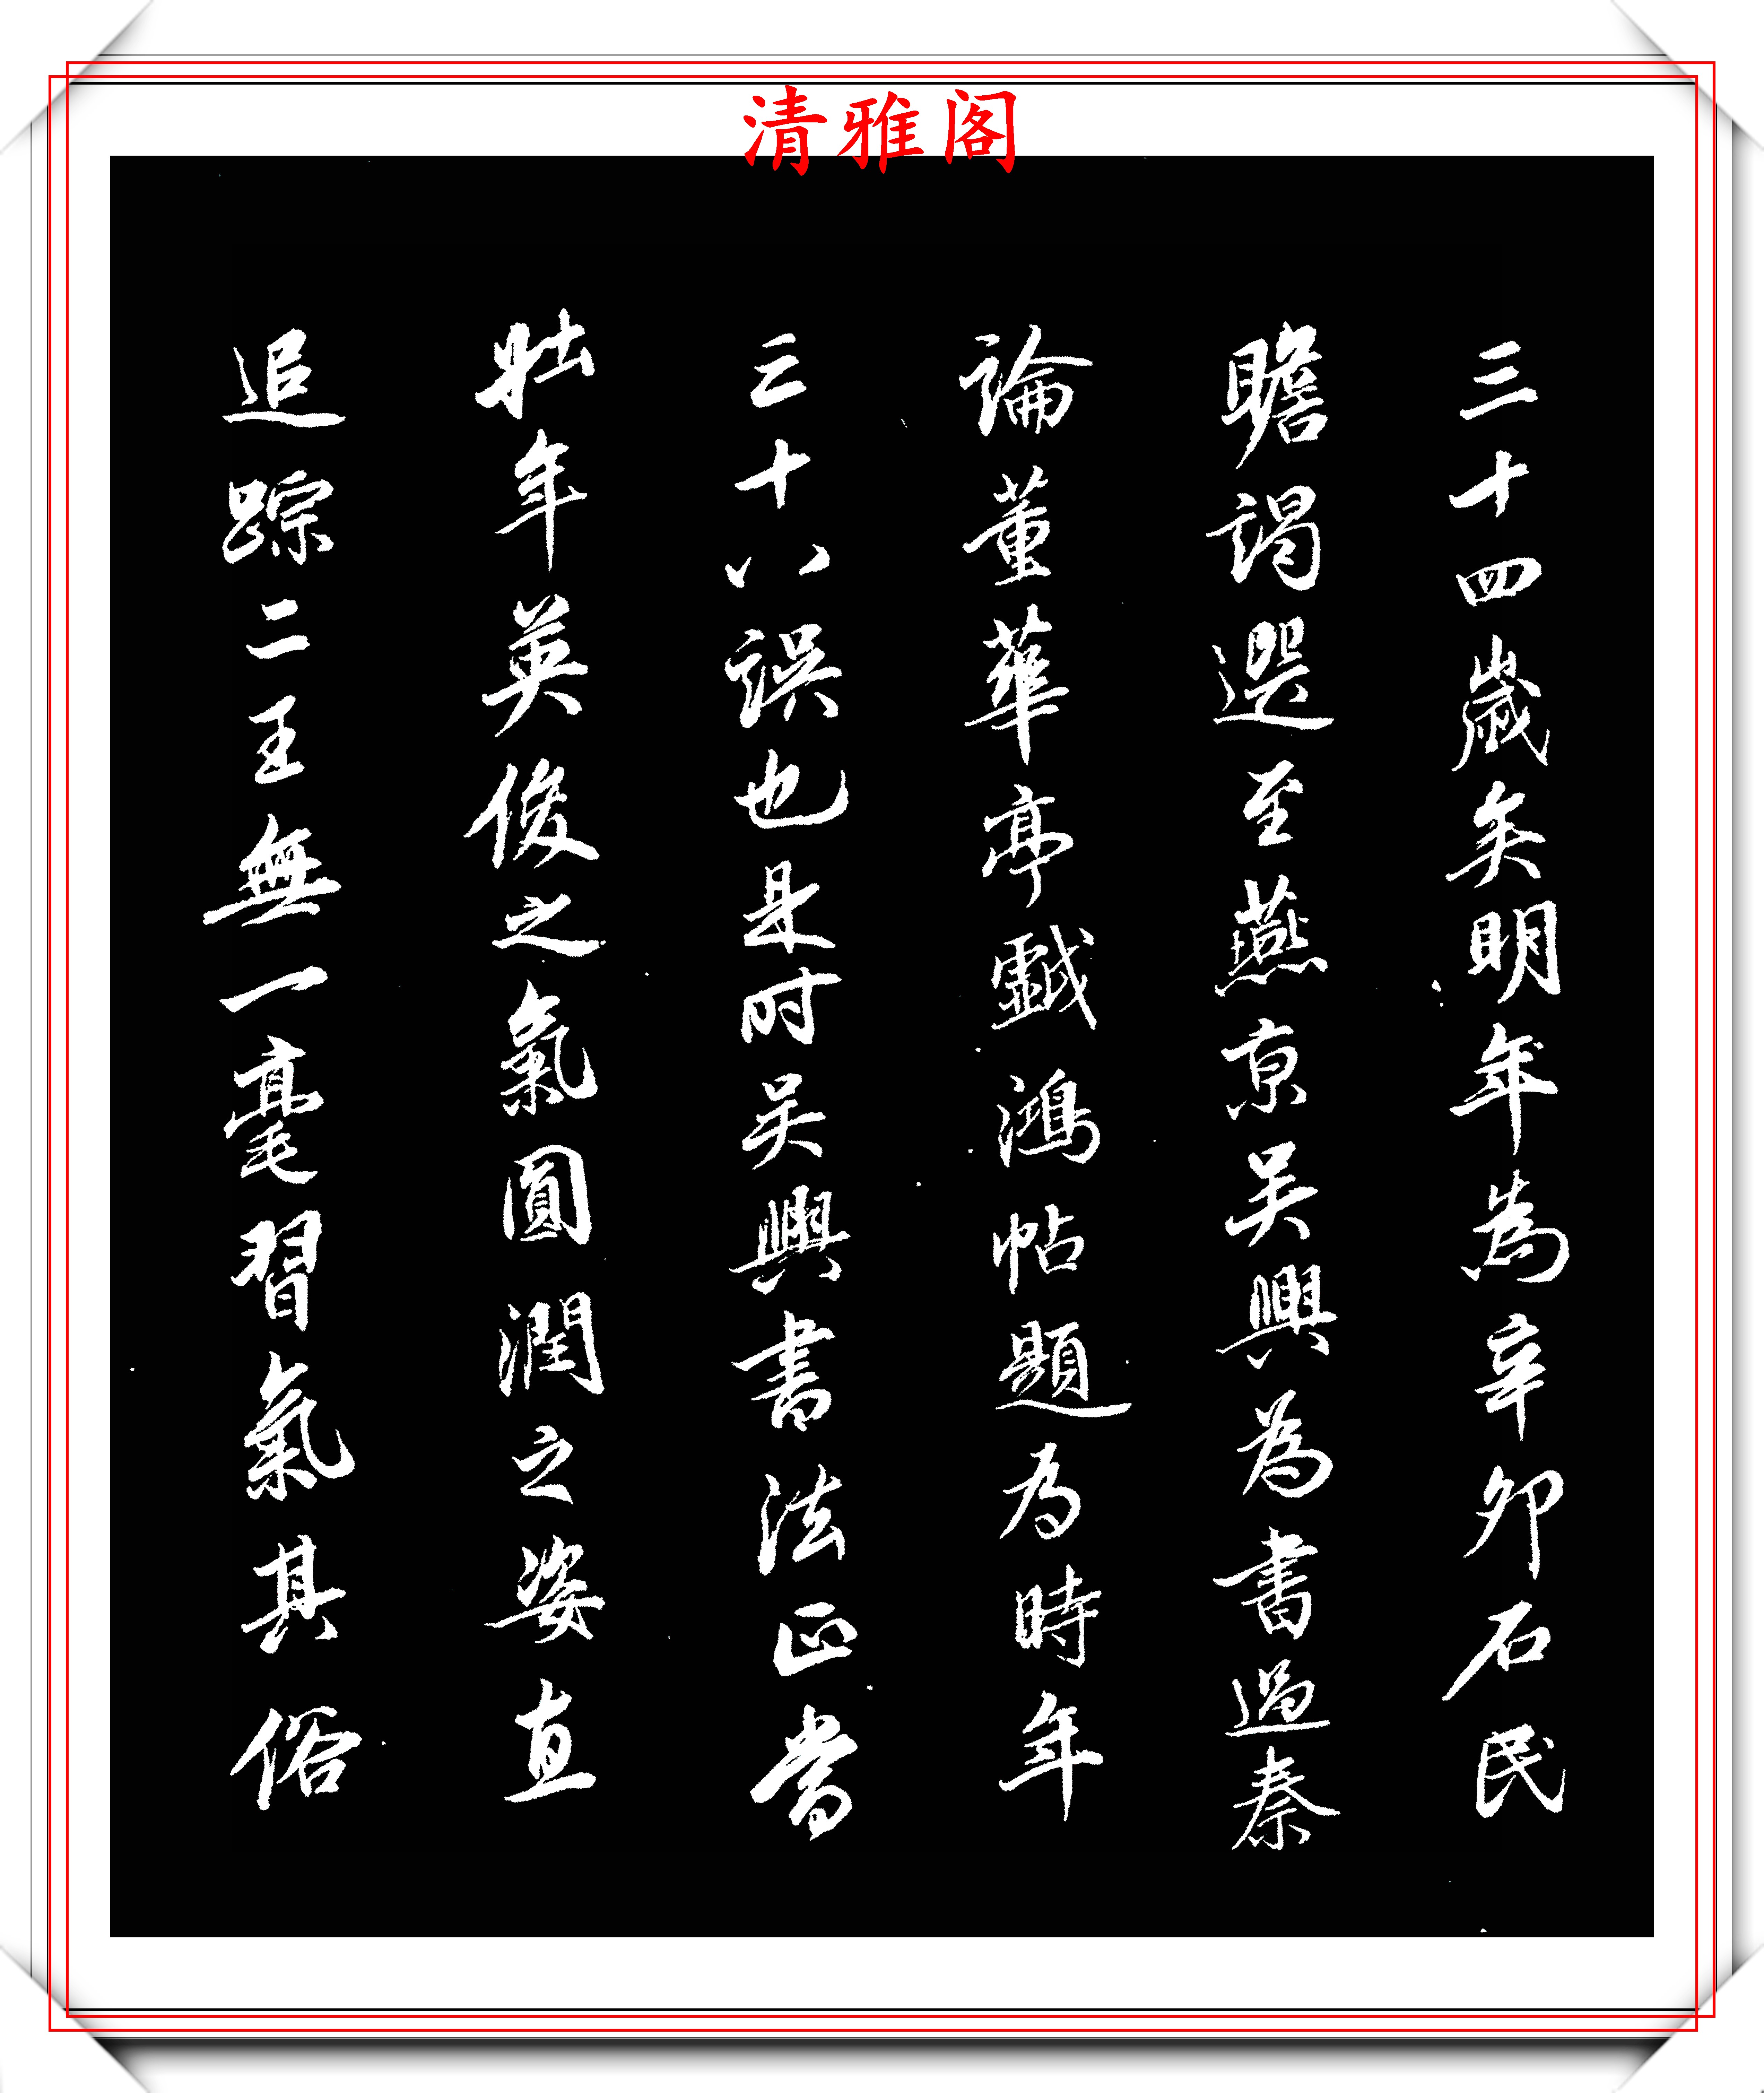 清雅阁
三十四歲矣明年為辛卯石民
瞻謁選至燕京吴興為書過秦
論董華亭戲鴻帖題为時年
三十八誤也是时吴興書法正當
壯年英俊之氣圓潤之姿直
追踪二王無一毫習氣其俗